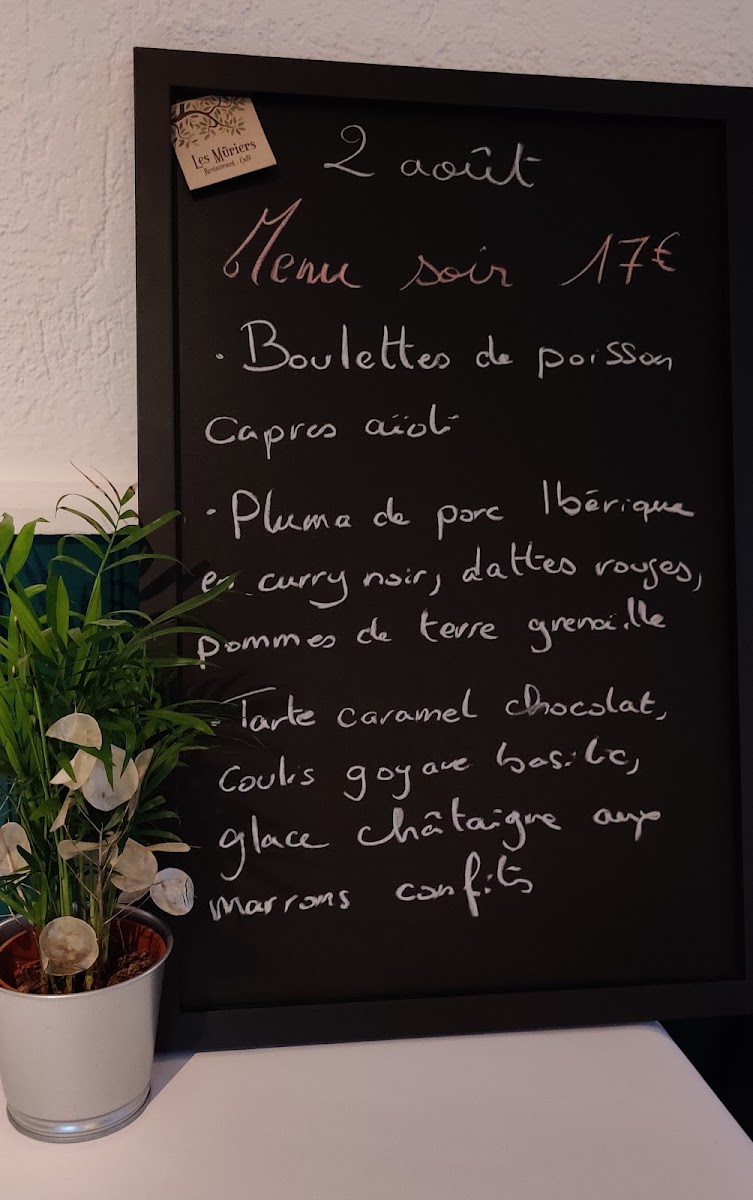 Les Mûriers
Restaurant - Café
2 août
Menu soir 17€
• Boulettes de poisson
Capres aïoli
• Pluma de porc Ibérique
en curry noir, dattes rouges,
pommes de terre grenaille
• Tarte caramel chocolat,
coulis goyave basilic,
glace châtaigne aux
marrons confits